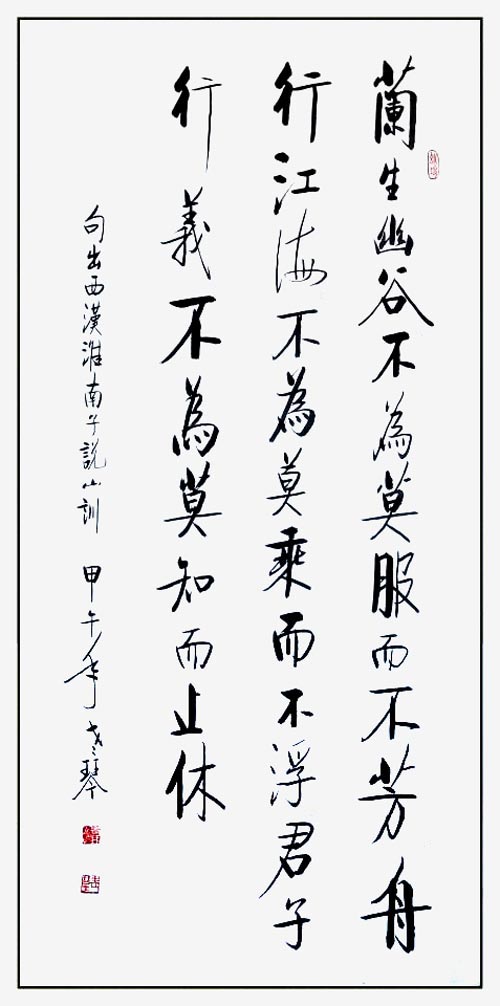 蘭生幽谷不為莫服而不芳舟
行江海不為莫乘而不浮君子
行義不為莫知而止休
句出西漢淮南子說山訓 甲午年 琴